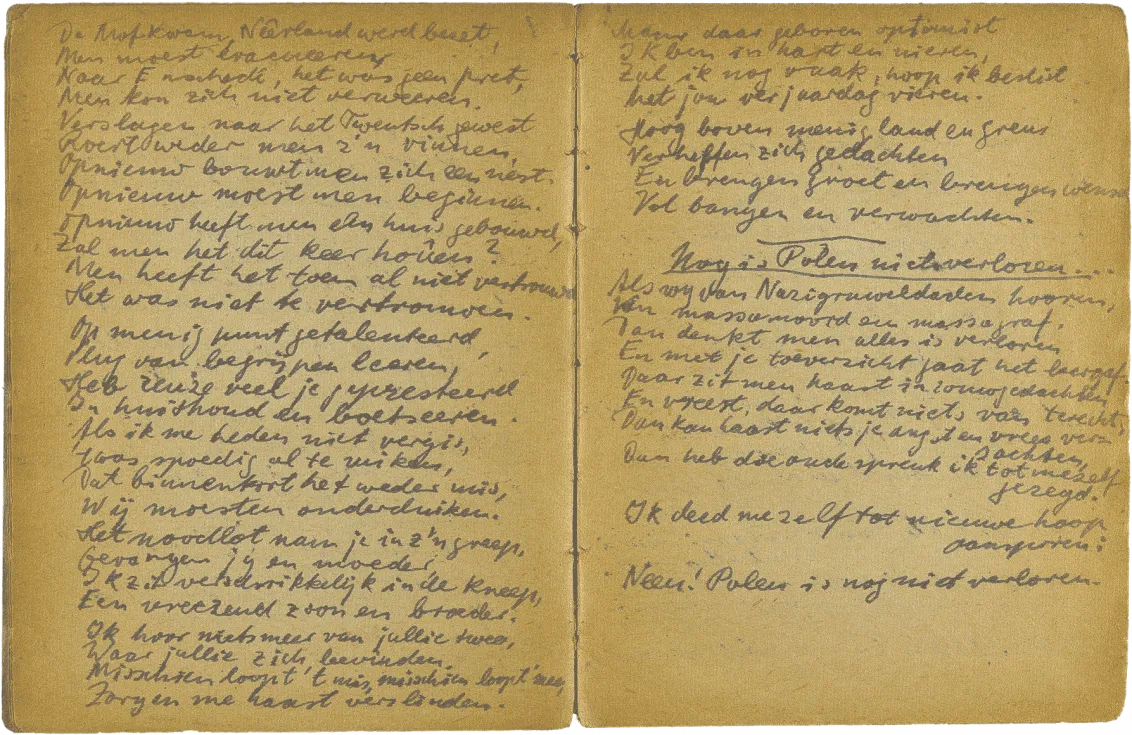 De Mof kwam, Neerland werd bezet,
Men moest evacueeren,
Naar Enschedé, het was geen pret,
Men kon zich niet verweeren.
Verslagen naar het Twentsch gewest
Roert weder men z'n vinnen,
Opnieuw bouwt men zich een nest.
Opnieuw moest men beginnen.
Opnieuw heeft men een huis gebouwd,
Zal men het dit keer houên?
Men heeft het toen al niet vertrouwd
Het was niet te vertrouwen.
Op menig punt getalenteerd,
Vlug van begrijpen leeren,
Heb je veel gepresteerd
In huishoud en boetseeren.
Als ik me heden niet vergis,
't was spoedig al te ruiken,
Dat binnenkort het weder mis,
Wij moesten onderduiken.
Het noodlot nam je in z'n greep,
Gevangen jij en moeder
Ik zit verschrikkelijk in de kneep,
Een vreezend zoon en broeder.
Ik hoor niets meer van jullie twee,
Waar jullie zich bevinden.
Misschien loopt 't mis, misschien loopt 't mee,
Zorgen me haast verslinden.
Maar daar geboren optimist
Ik ben in hart en nieren,
Zal ik nog vaak, hoop ik beslist
het jou verjaardag vieren.
Hoog boven menig land en grens
Verheffen zich gedachten
En brengen groet en brengen wensch
Vol bangen en verwachten.
Nog is Polen niet verloren...
Als wij van Nazigruweldaden hooren,
Van massamoord en massagraf,
Dan denkt men alles is verloren
En met je toeverzicht gaat het bergaf.
Daar zit men haast in gedachten,
En vreest, daar komt niets van terecht,
Dan kan haast niets je angst en vrees verzachten,
Dan heb die oude spreuk ik tot mezelf
gezegd.
Ik deed mezelf tot nieuwe hoop
aansporen:
Neen! Polen is nog niet verloren.